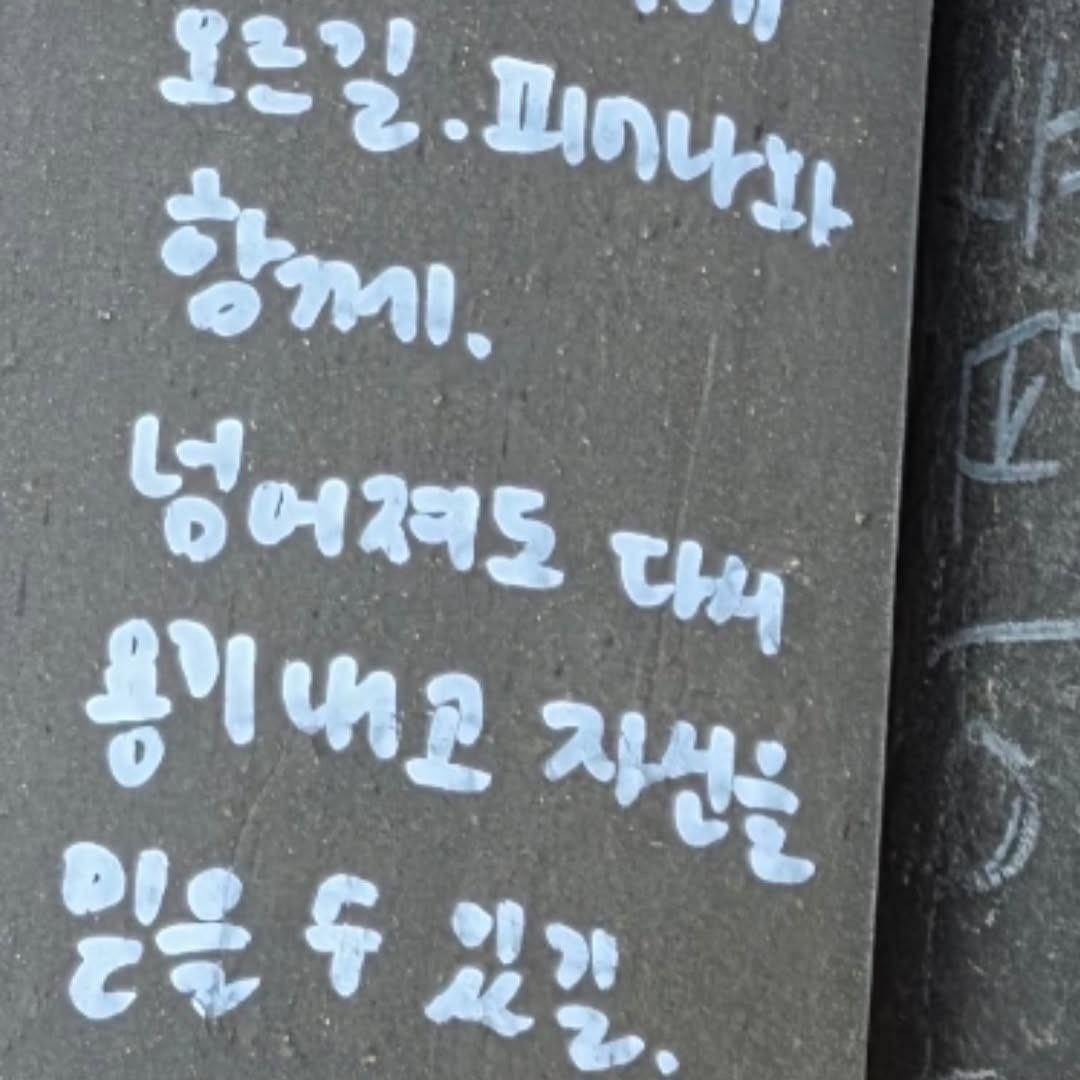 오르길. 피어나와
함께.
넘어져도 다시
용기내고 자신을
믿을 수 있길.